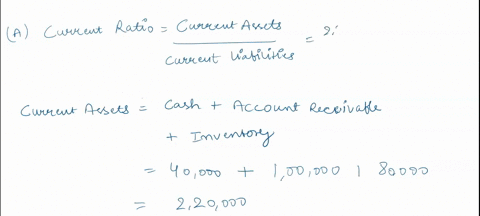 (A) Current Ratio = Current Assets / Current Liabilities = 2:
Current Assets = Cash + Account Receivable
+ Inventory
= 40,000 + 1,00,000 1 80000
= 2,20,000